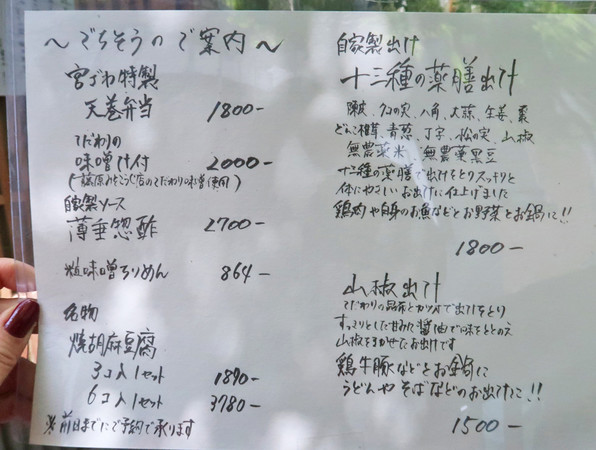 ～ごちそうのご案内～
宮ざわ特製
天巻弁当 1800-
こだわりの
味噌汁付 2000-
自家製ソース
薄垂惣酢 2700-
粒味噌ちりめん 864-
名物
焼胡麻豆腐
3コ入1セット 1890-
6コ入1セット 3780-
※前日までにご予約で承ります
自家製出汁
十三種の薬膳出汁
陳皮、クコの実、八角、大蒜、生姜、棗
どんこ椎茸、青葱、丁字、松の実、山椒
無農薬米、無農薬黒豆
十三種の薬膳で出汁をとりスッキリと
体にやさしいお出汁に仕上げました
鶏肉や白身のお魚などとお野菜とお鍋に!!
1800-
山椒出汁
こだわりの昆布とカツオで出汁をとり
すっきりとした甘みと醤油で味をととのえ
山椒をきかせたお出汁です
鶏牛豚などとお鍋に
うどんやそばなどのお出汁に!!
1500-